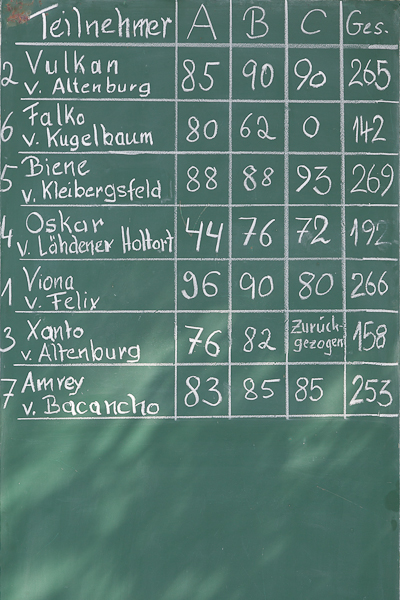 Teilnehmer A B C Ges.
2 Vulkan v. Altenburg 85 90 90 265
6 Falko v. Kugelbaum 80 62 0 142
5 Biene v. Kleibergsfeld 88 88 93 269
4 Oskar v. Lähdener Holtort 44 76 72 192
1 Viona v. Felix 96 90 80 266
3 Xanto v. Altenburg 76 82 Zurück-gezogen 158
7 Amrey v. Bacancho 83 85 85 253